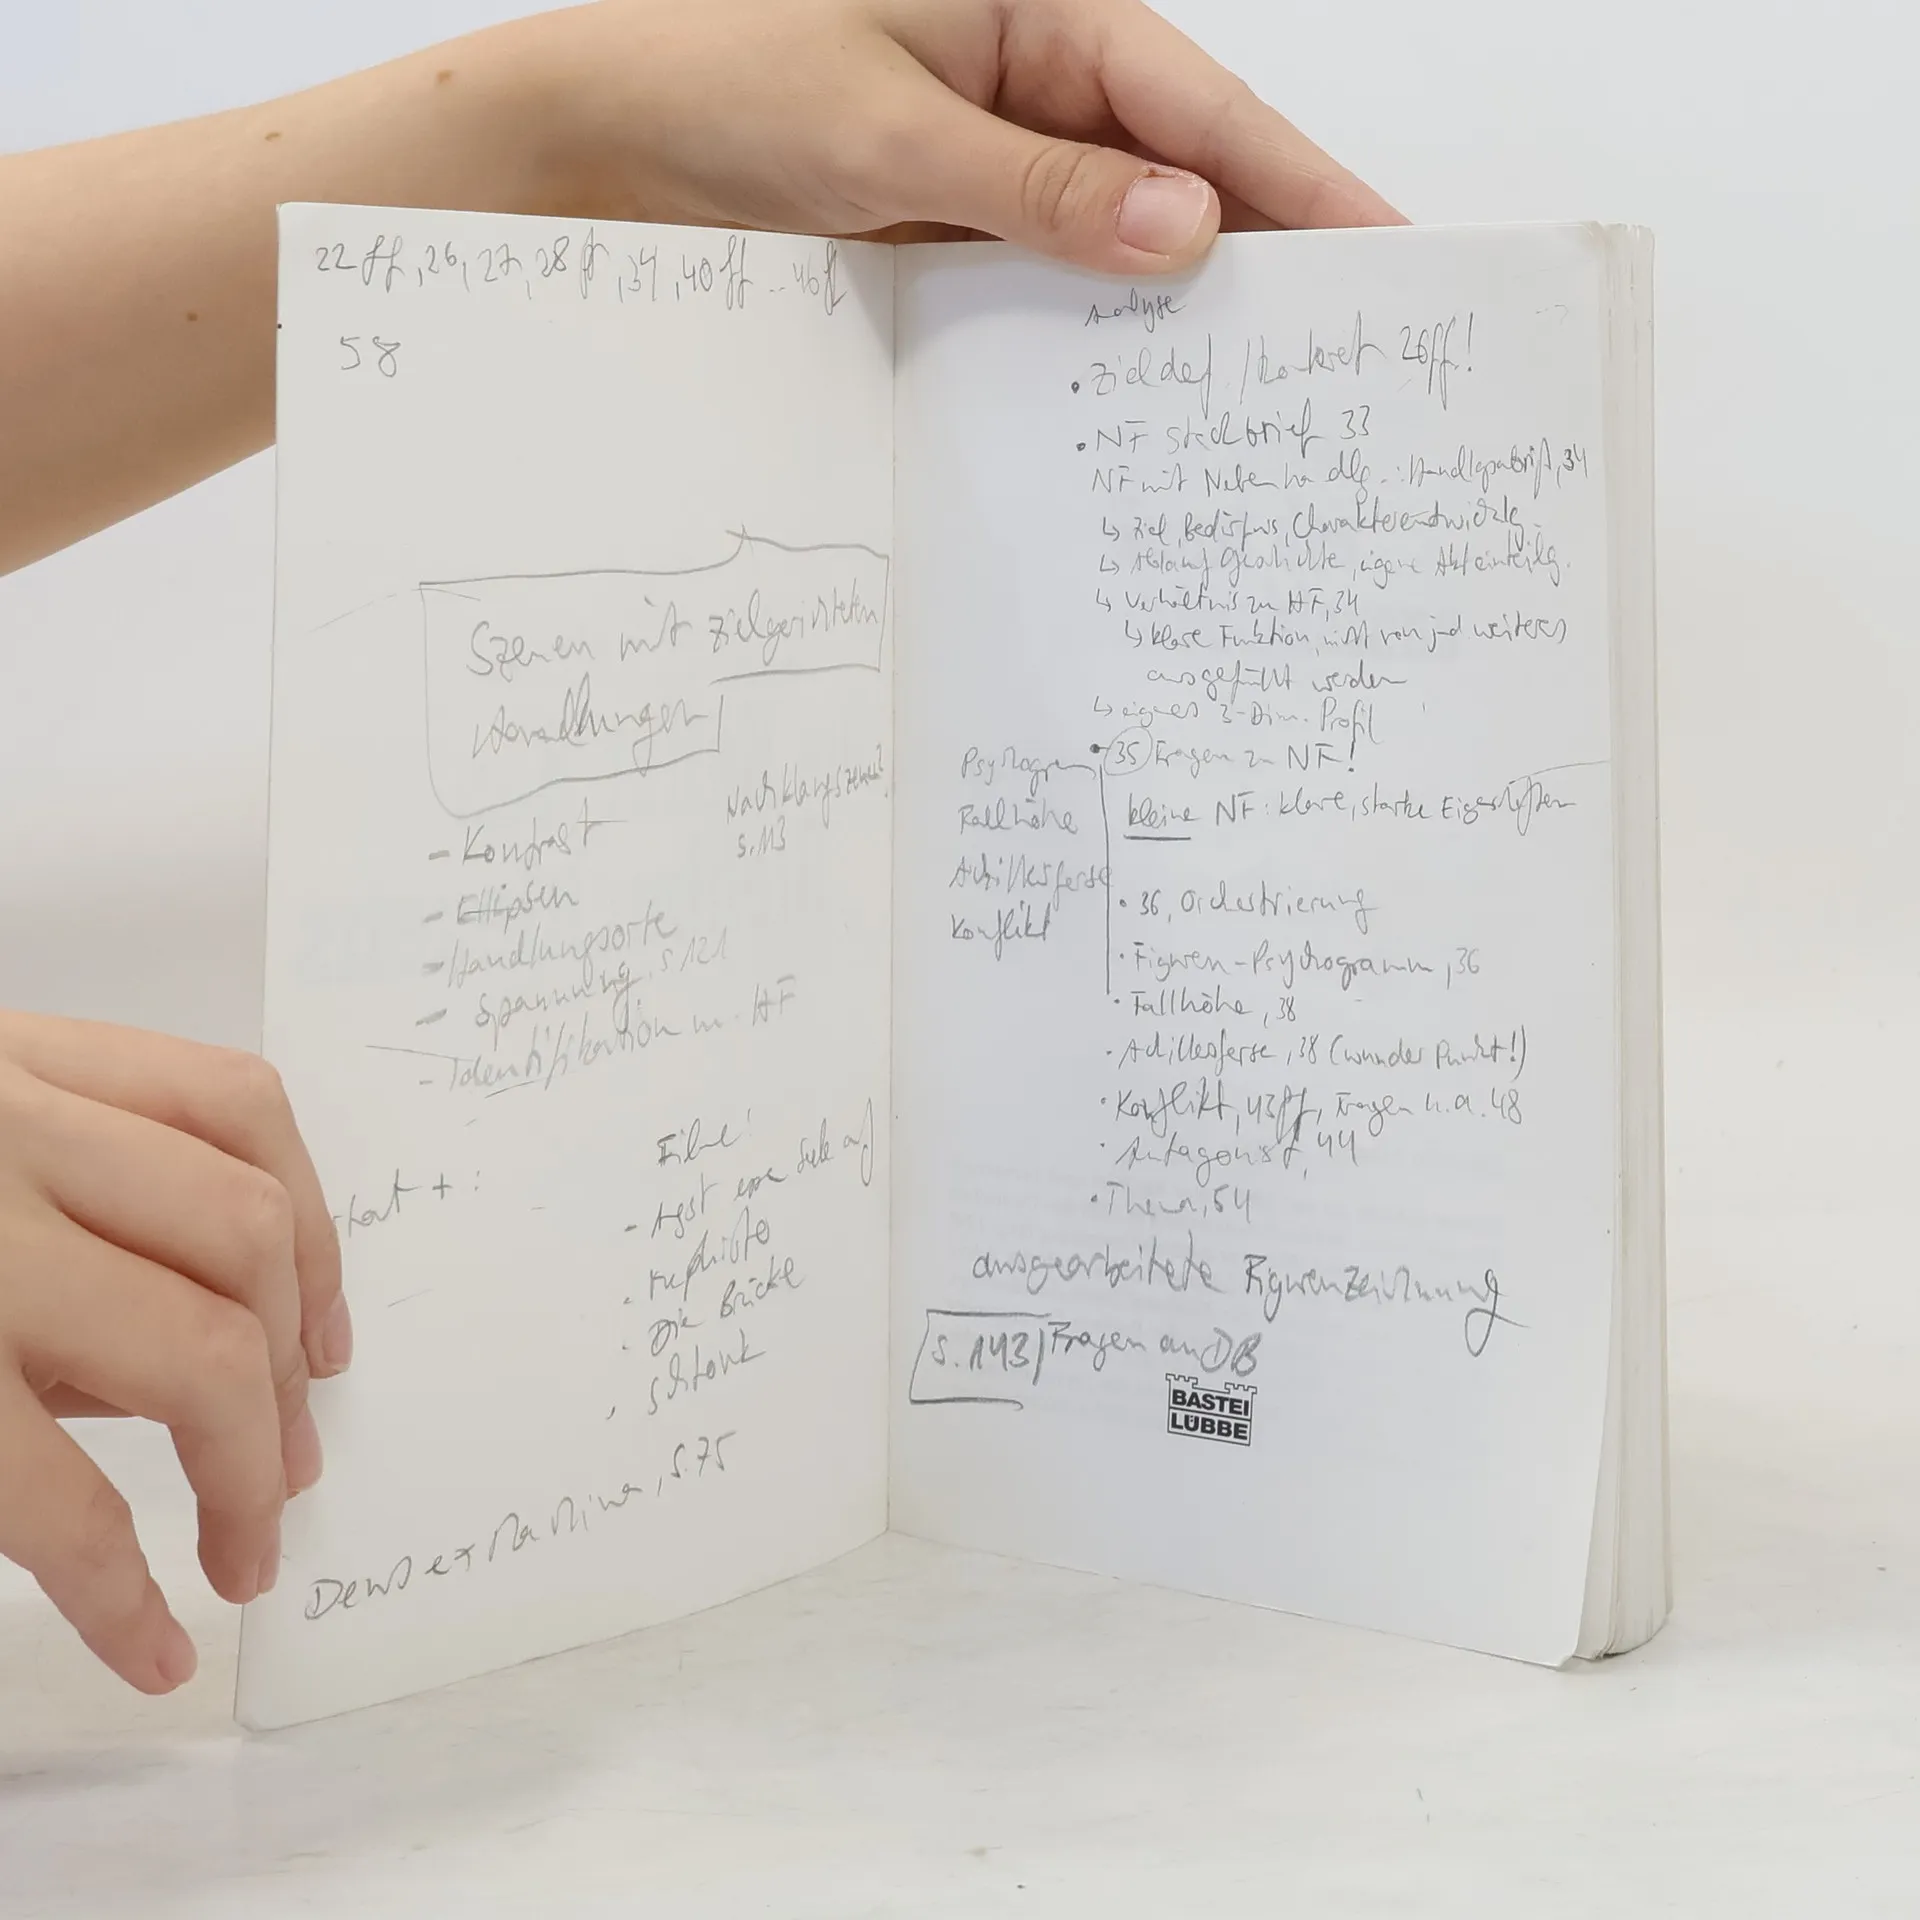 22 ff, 26, 27, 28 ff, 34, 40 ff .. 46 ff
58
Szenen mit zielgerichteten
Handlungen
Nachklangszene?
S. 113
- Kontrast
- Ellipsen
- Handlungsorte
- Spannung, S 121
- Identifikation m. HF
+ :
Filme:
- Angst essen Seele auf
- Mephisto
- Die Brücke
- Schtonk
Deus ex Machina, S. 75
Analyse
• Zieldef. / konkret 26ff!
• NF Steckbrief 33
NF mit Nebenhandlg.: Handlgsabriß, 34
↳ Ziel, Bedürfnis, Charakterentwicklg.
↳ Ablauf Geschichte, eigene Akteinteilg.
↳ Verhältnis zu HF, 34
↳ klare Funktion, nicht von jmd weiteres
ausgefüllt werden
↳ eigenes 3-Dim. Profil
• 35 Fragen zu NF!
kleine NF: klare, starke Eigenschaften
Psychogramm
Fallhöhe
Achillesferse
Konflikt
• 36, Orchestrierung
• Figuren-Psychogramm, 36
• Fallhöhe, 38
• Achillesferse, 38 (wunder Punkt!)
• Konflikt, 43ff, Fragen u.a. 48
• Antagonist, 44
• Thema, 54
ausgearbeitete Figurenzeichnung
S. 143 Fragen an DB
BASTEI
LÜBBE